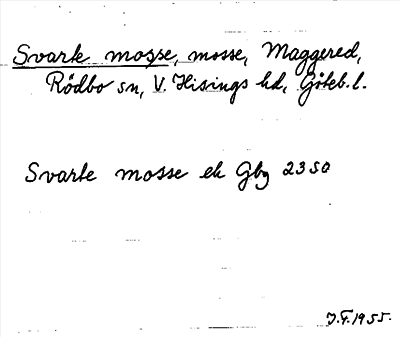 Svarte mosse, mosse, Maggered,
Rödbo sn, V. Hisings hd, Göteb. l.
Svarte mosse ek Gbg 2350
J.F. 1955.